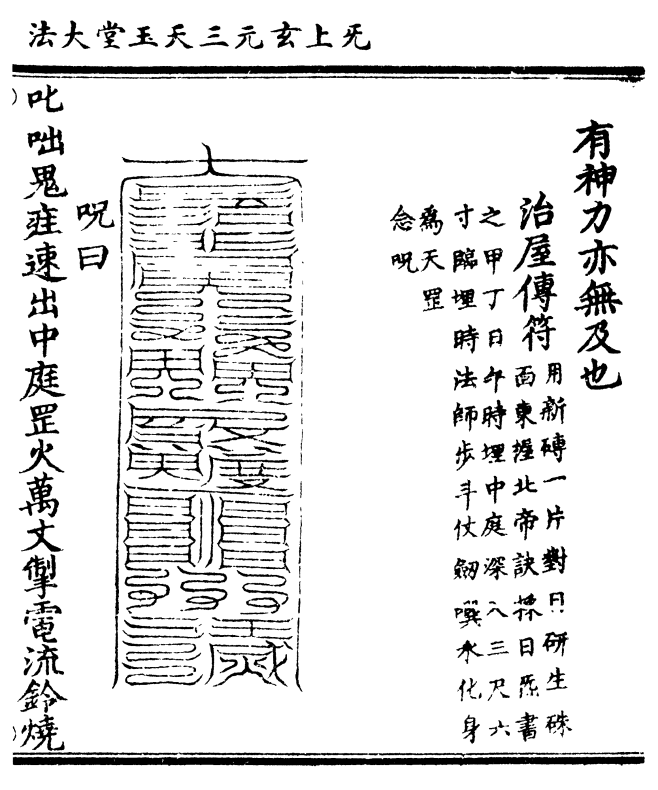 旡上玄元三天玉堂大法
有神力亦無及也
治屋傳符
用新磚一片對日研生硃
面東握北帝訣採日炁書
之甲丁日午時埋中庭深入三尺六
寸臨埋時法師步斗仗劒噀水化身
爲天罡
念呪
呪曰
叱咄鬼疰速出中庭罡火萬丈掣電流鈴燒